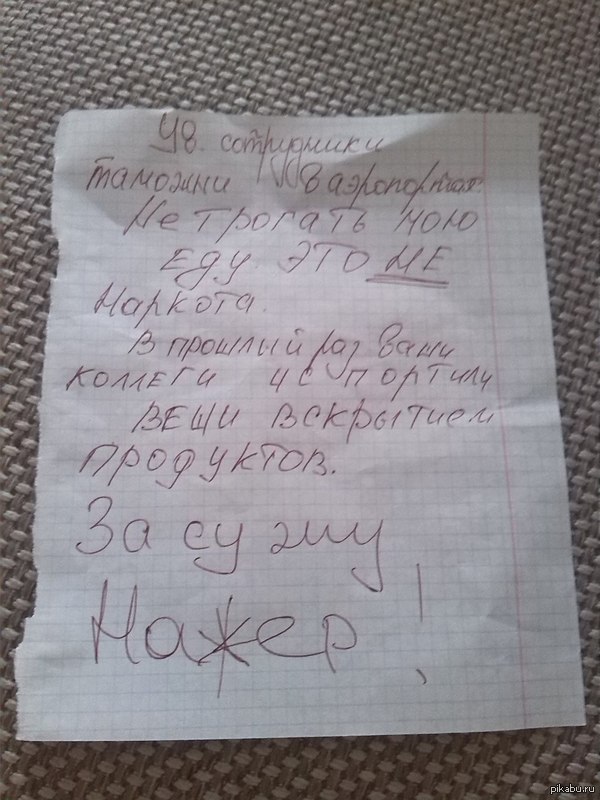 Ув. сотрудники
таможни в аэропортах.
Не трогать мою
еду. ЭТО НЕ
Наркота.
В прошлый раз ваши
коллеги испортили
ВЕЩИ вскрытием
продуктов.
Засужу
Нахер!
pikabu.ru